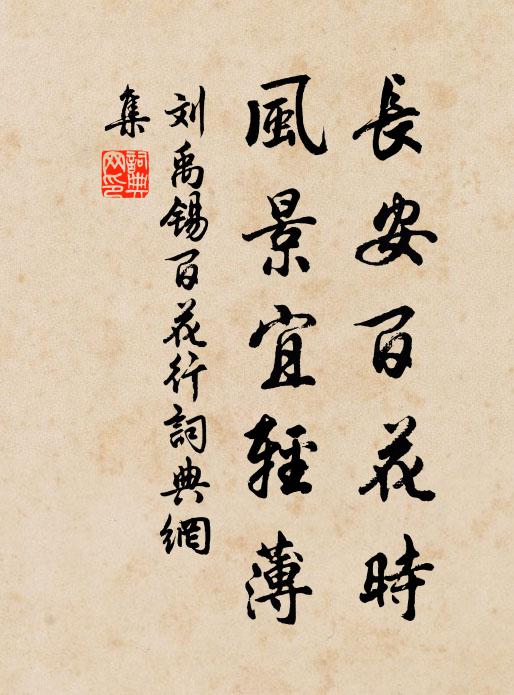 長安百花時
風景宜輕薄
刘禹锡百花行詞典網
集
詞典
网印